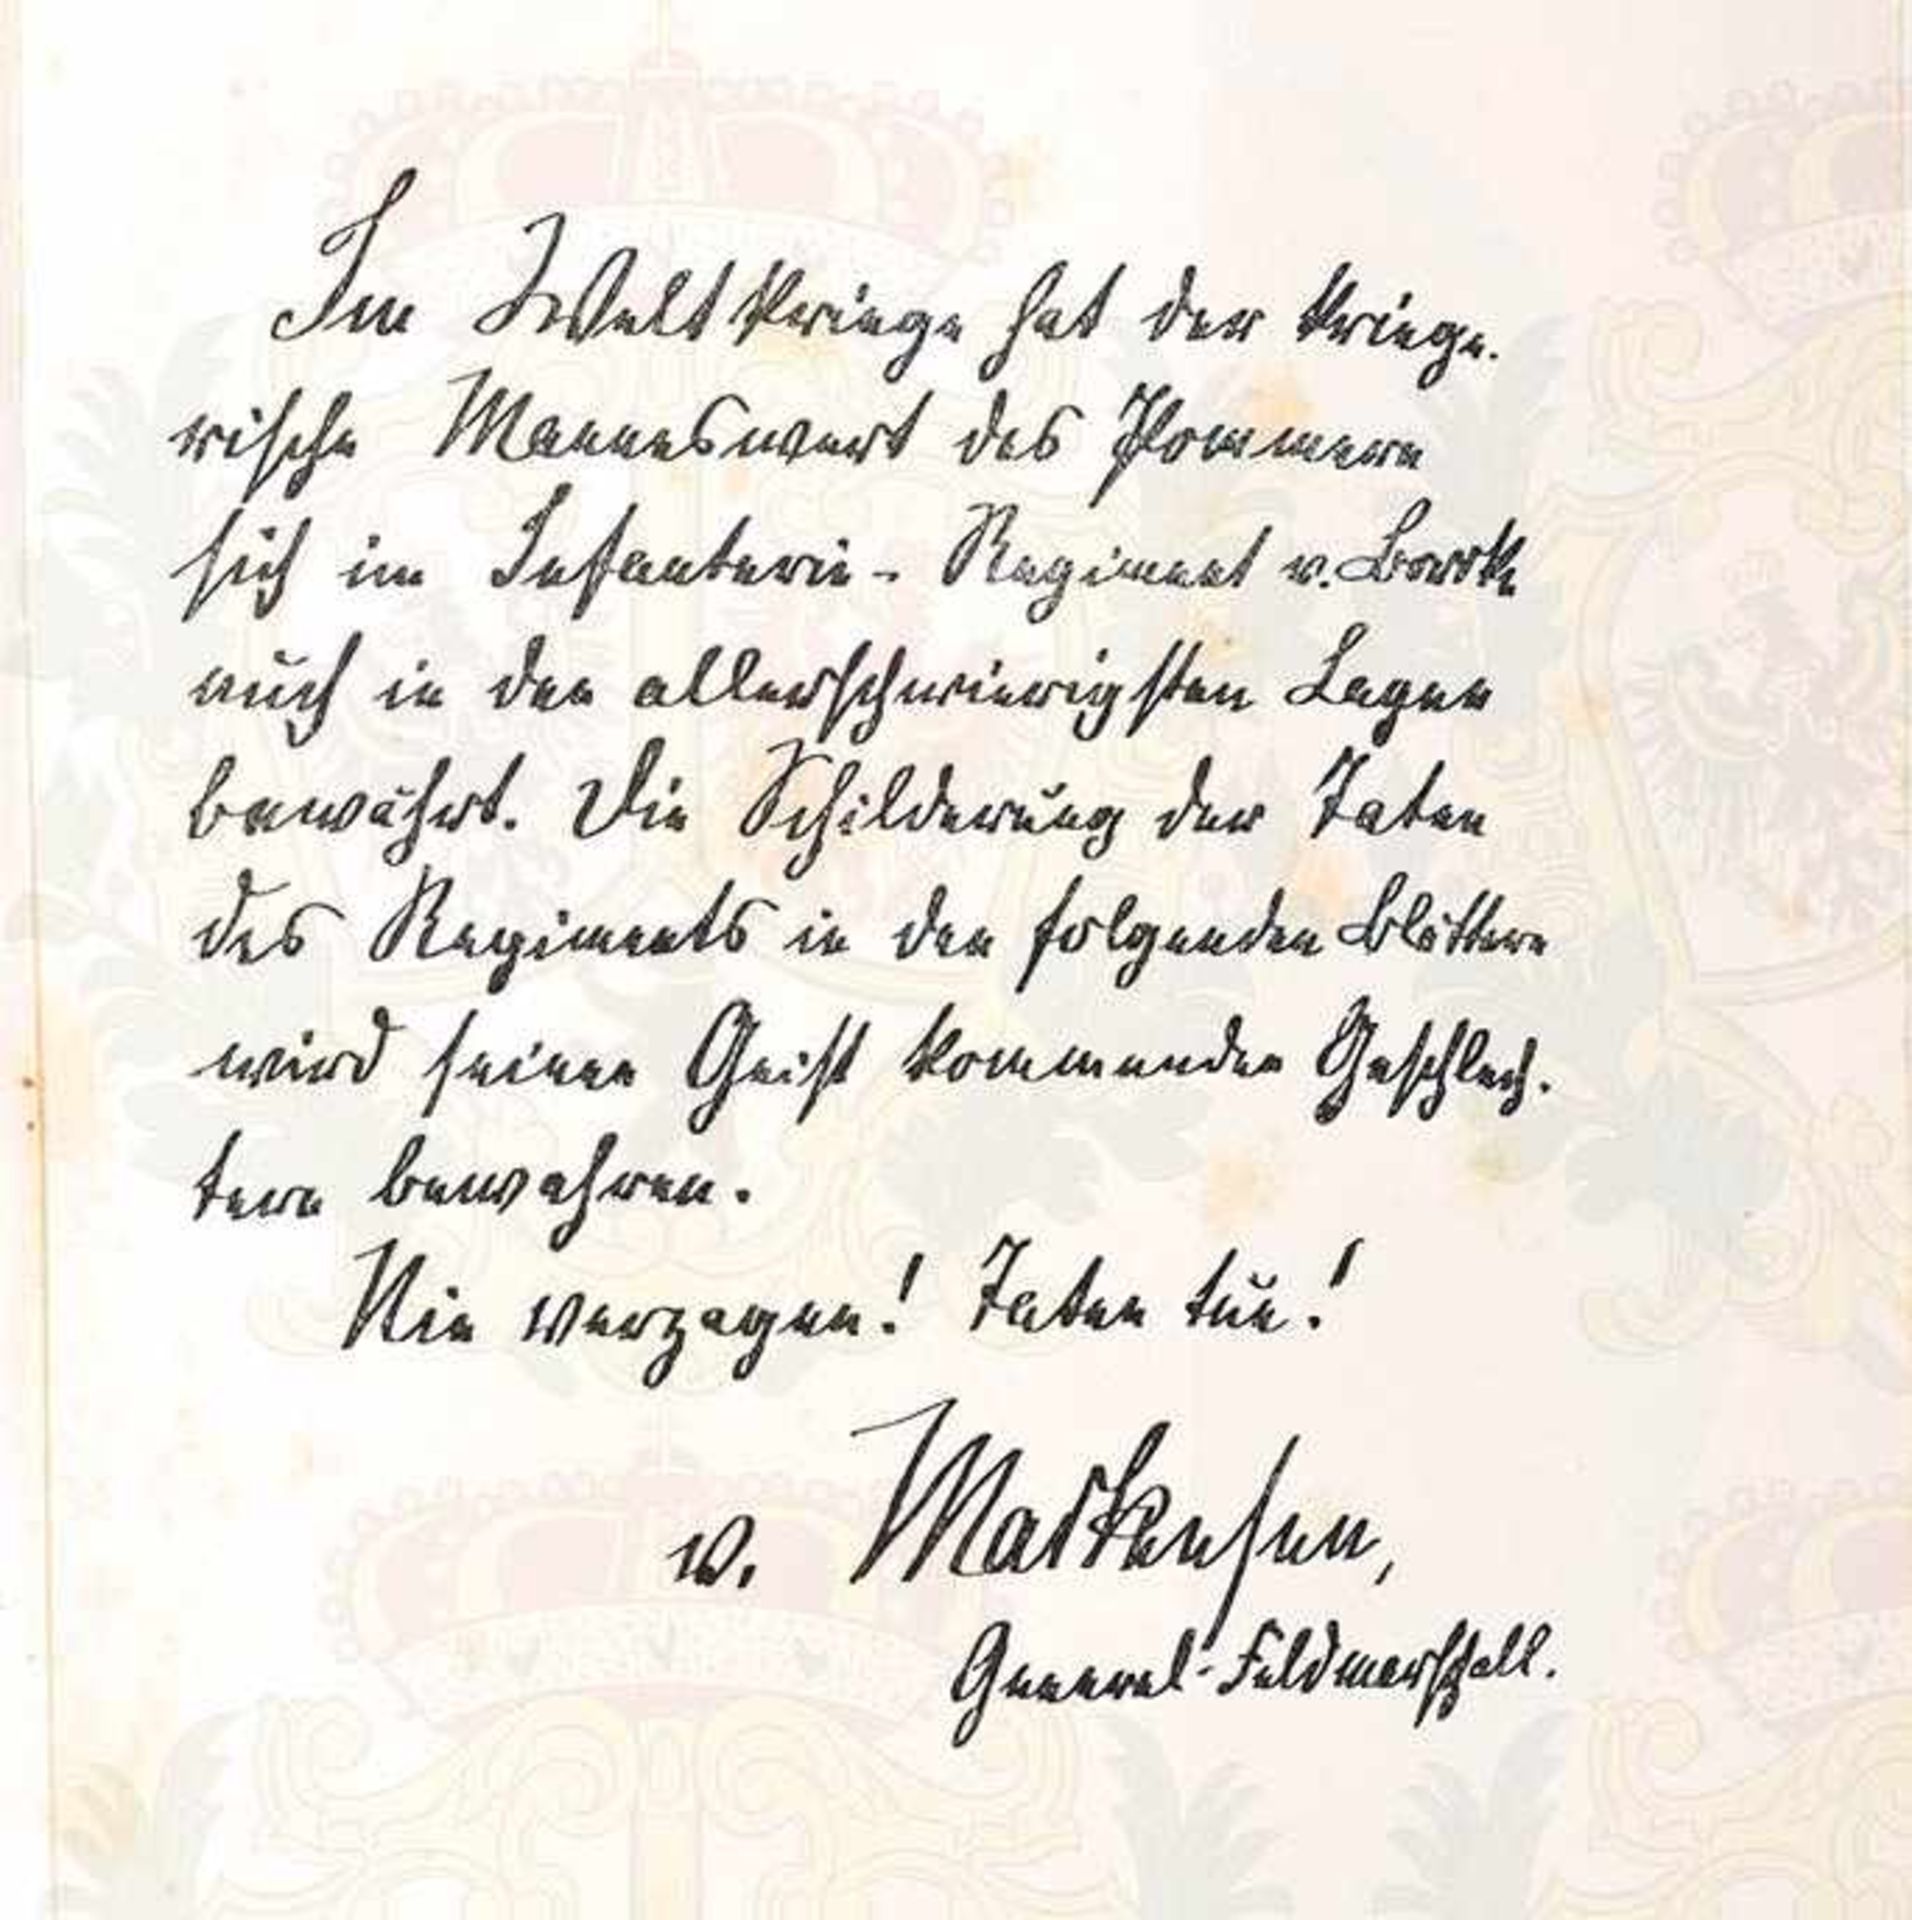 Im Weltkriege hat der kriege-
rische Manneswert des Pommern
sich im Infanterie-Regiment v. Borcke
auch in den allerschwierigsten Lagen
bewährt. Die Schilderung der Taten
des Regiments in den folgenden Blättern
wird seinen Geist kommenden Geschlech-
tern bewahren.
Nie verzagen! Taten tun!
v. Mackensen,
General-Feldmarschall.